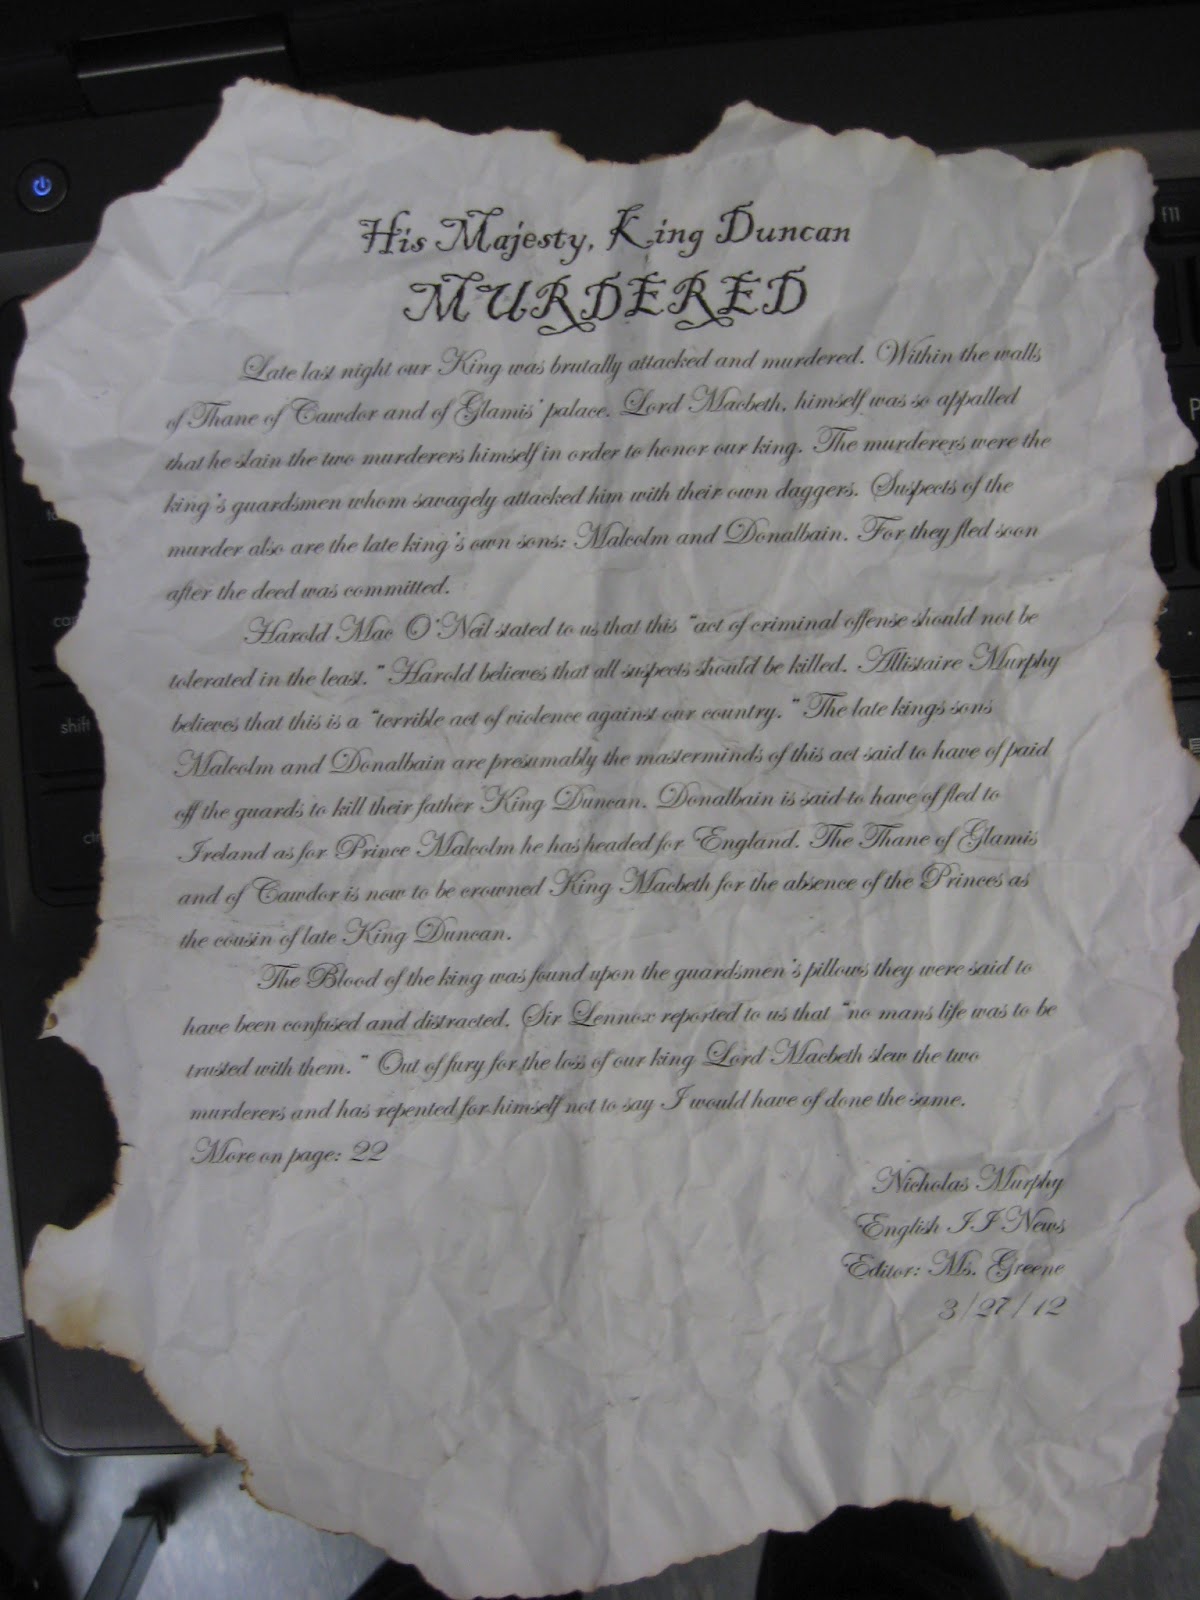 His Majesty, King Duncan
MURDERED
Late last night our King was brutally attacked and murdered. Within the walls
of Thane of Cawdor and of Glamis' palace. Lord Macbeth, himself was so appalled
that he slain the two murderers himself in order to honor our king. The murderers were the
king's guardsmen whom savagely attacked him with their own daggers. Suspects of the
murder also are the late king's own sons: Malcolm and Donalbain. For they fled soon
after the deed was committed.
Harold Mac O'Neil stated to us that this "act of criminal offense should not be
tolerated in the least." Harold believes that all suspects should be killed. Allistaire Murphy
believes that this is a "terrible act of violence against our country." The late kings sons
Malcolm and Donalbain are presumably the masterminds of this act said to have of paid
off the guards to kill their father King Duncan. Donalbain is said to have of fled to
Ireland as for Prince Malcolm he has headed for England. The Thane of Glamis
and of Cawdor is now to be crowned King Macbeth for the absence of the Princes as
the cousin of late King Duncan.
The Blood of the king was found upon the guardsmen's pillows they were said to
have been confused and distracted. Sir Lennox reported to us that "no mans life was to be
trusted with them." Out of fury for the loss of our king Lord Macbeth slew the two
murderers and has repented for himself not to say I would have of done the same.
More on page: 22
Nicholas Murphy
English II News
Editor: Ms. Greene
3/27/12
f11
shift